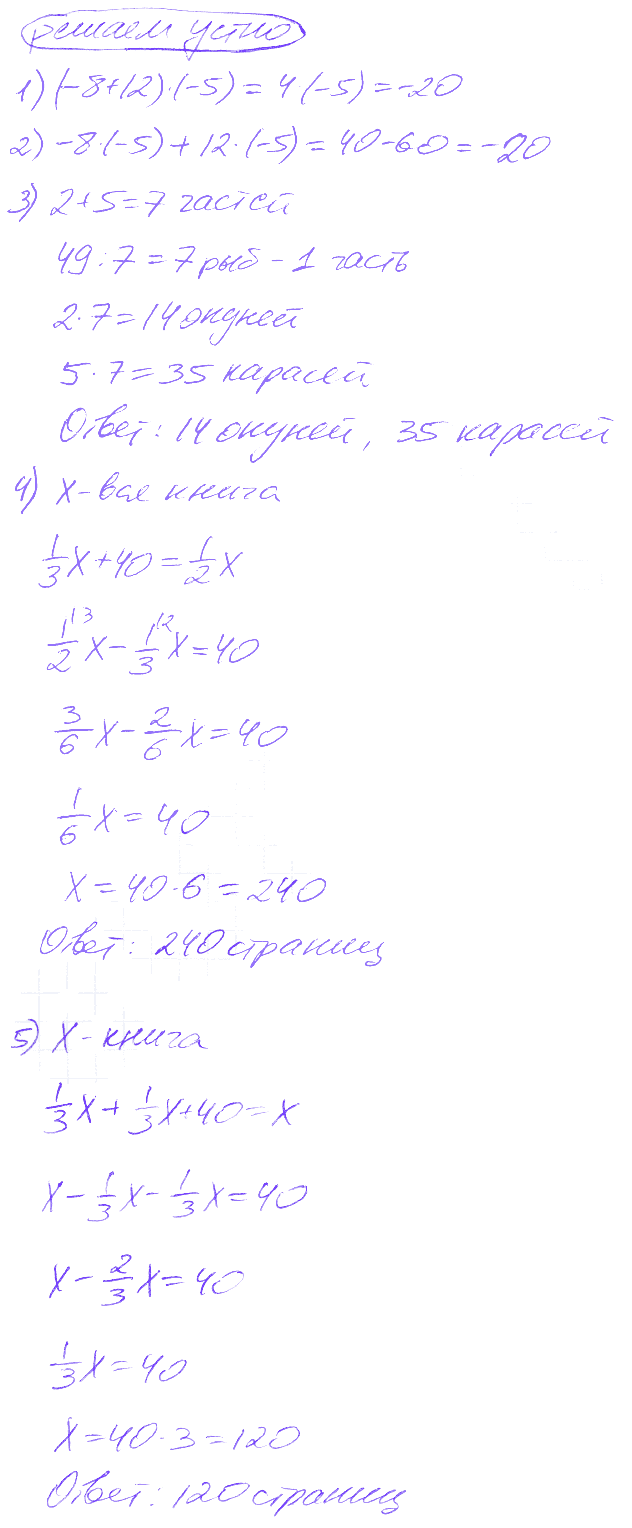 решаем устно
1) (-8+12)·(-5) = 4(-5) = -20
2) -8·(-5) + 12·(-5) = 40-60 = -20
3) 2+5=7 частей
49:7=7 рыб - 1 часть
2·7=14 окуней
5·7=35 карасей
Ответ: 14 окуней, 35 карасей
4) x - вся книга
1/3 x + 40 = 1/2 x
1/2 |3 x - 1/3 |2 x = 40
3/6 x - 2/6 x = 40
1/6 x = 40
x = 40·6 = 240
Ответ: 240 страниц
5) x - книга
1/3 x + 1/3 x + 40 = x
x - 1/3 x - 1/3 x = 40
x - 2/3 x = 40
1/3 x = 40
x = 40·3 = 120
Ответ: 120 страниц